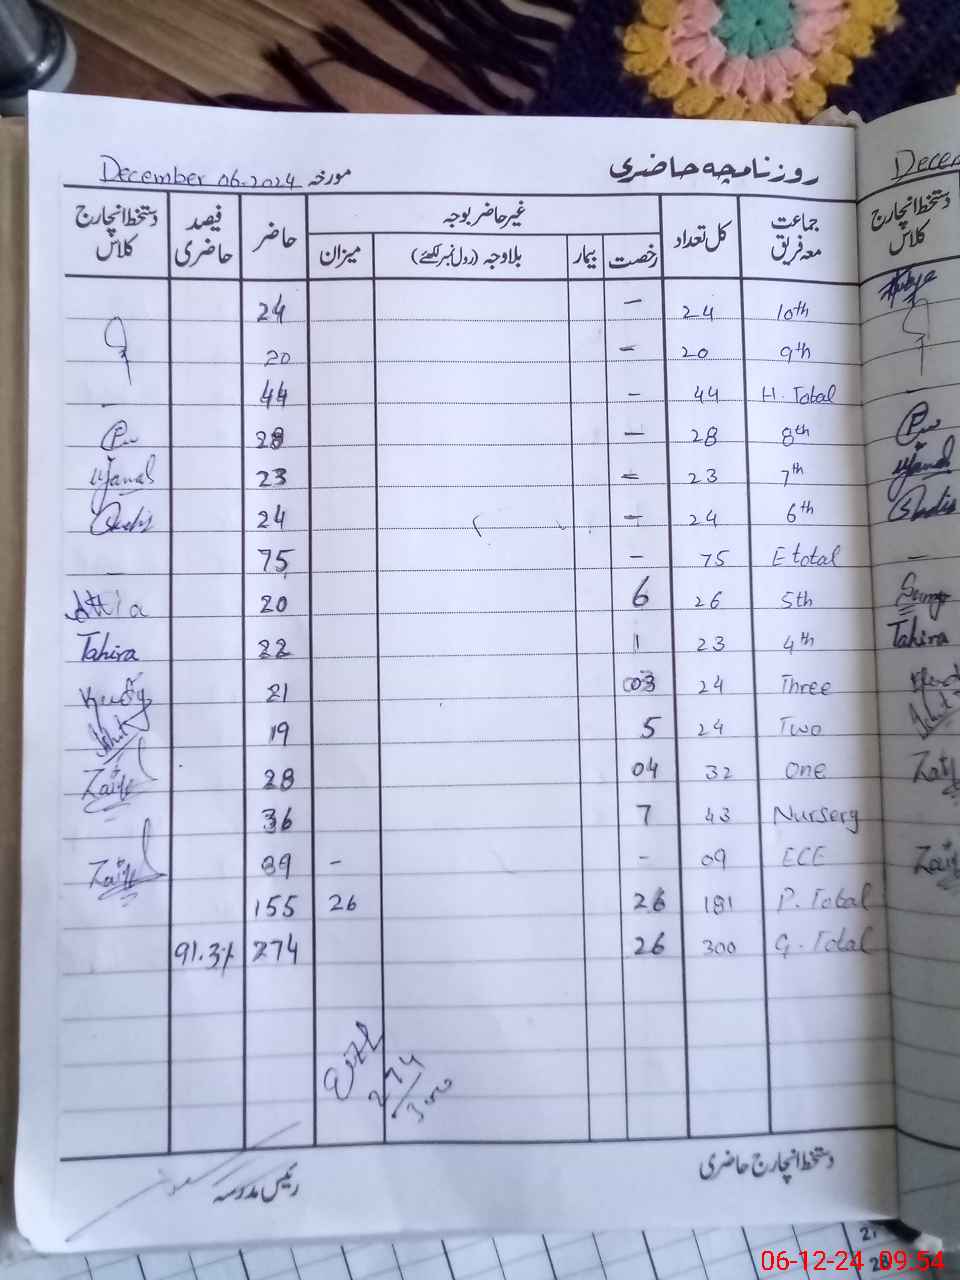 روزنامچہ حاضری
مورخہ December 06.2024
جماعت معہ فریق کل تعداد غیر حاضر بوجہ حاضر فیصد حاضری دستخط انچارج کلاس
رخصت بیمار بلاوجہ (رول نمبر لکھئے) میزان
10th 24 - 24
9th 20 - 20
H. Total 44 - 44 -
8th 28 - 28
7th 23 - 23
6th 24 - 24
E total 75 - 75 -
5th 26 6 20 Attia
4th 23 1 22 Tahira
Three 24 03 21
Two 24 5 19
One 32 04 28
Nursery 43 7 36
ECE 09 - - 09
P. Total 181 26 26 155
G. Total 300 26 274 91.3%
274/300
دستخط انچارج حاضری
رئیس مدرسہ
دستخط انچارج کلاس
Tahira
06-12-24 09.54